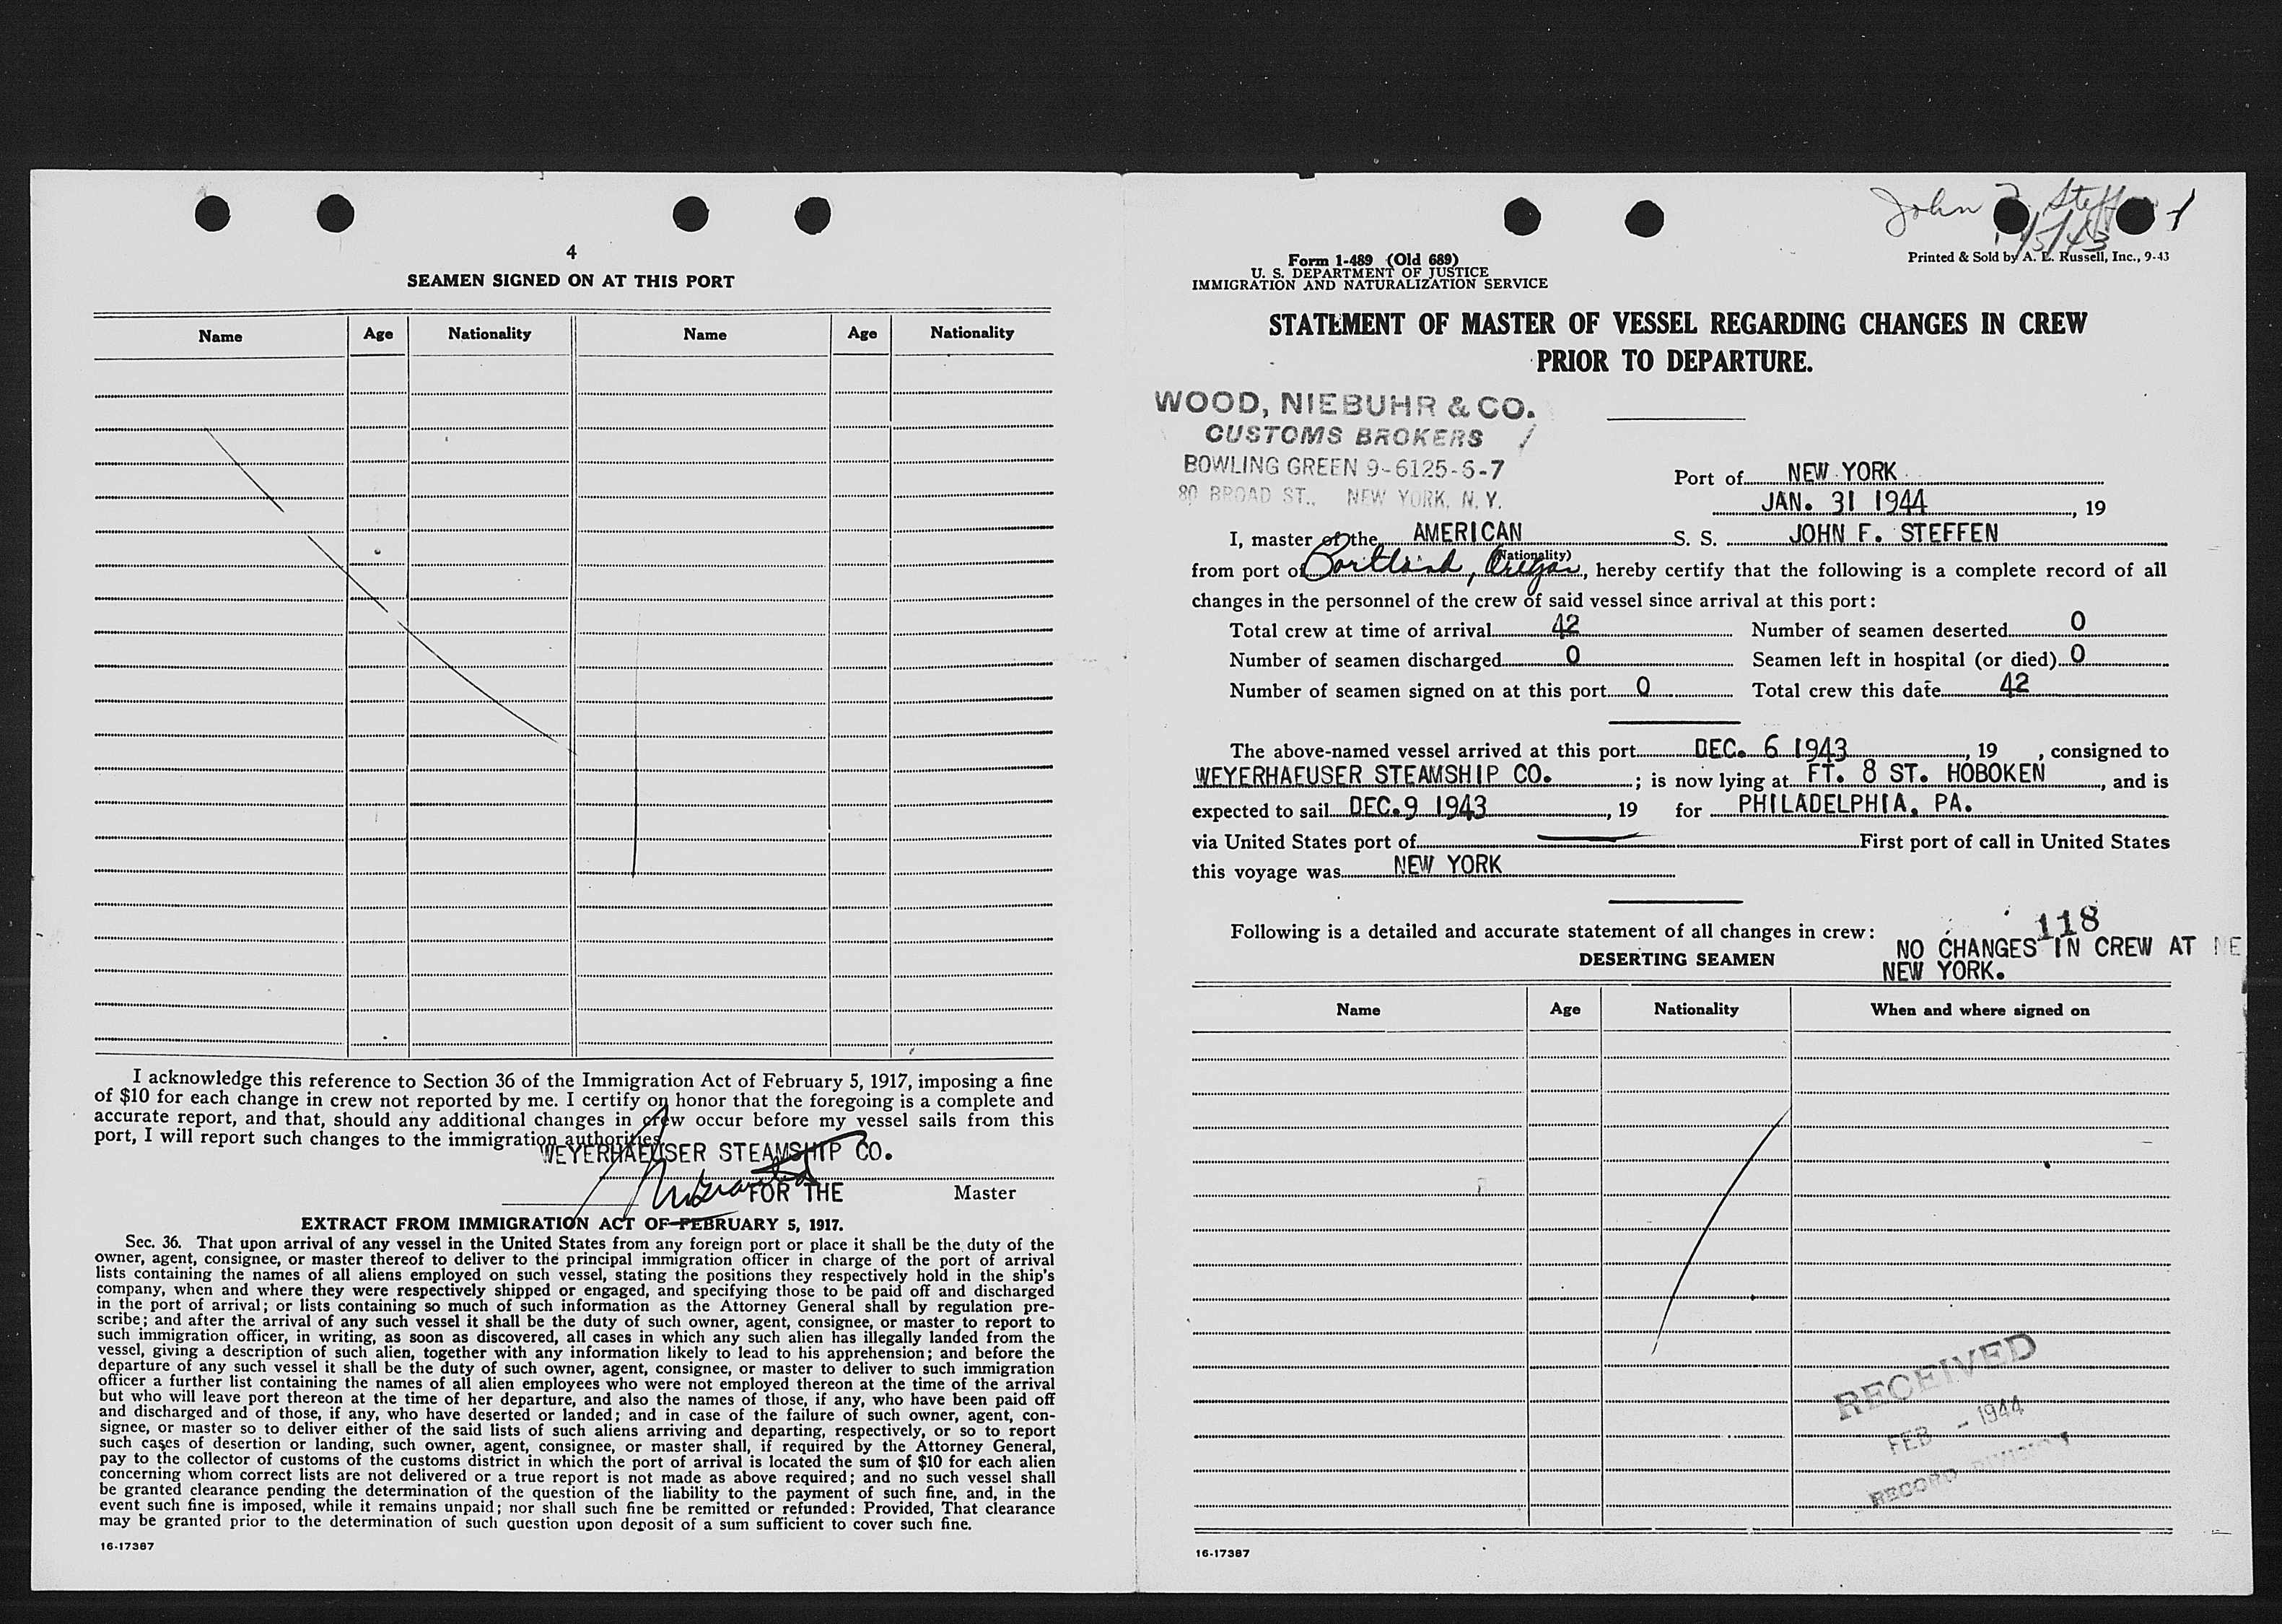 4
SEAMEN SIGNED ON AT THIS PORT
Name Age Nationality Name Age Nationality
I acknowledge this reference to Section 36 of the Immigration Act of February 5, 1917, imposing a fine
of $10 for each change in crew not reported by me. I certify on honor that the foregoing is a complete and
accurate report, and that, should any additional changes in crew occur before my vessel sails from this
port, I will report such changes to the immigration authorities.
WEYERHAEUSER STEAMSHIP CO.
FOR THE Master
EXTRACT FROM IMMIGRATION ACT OF FEBRUARY 5, 1917.
Sec. 36. That upon arrival of any vessel in the United States from any foreign port or place it shall be the duty of the
owner, agent, consignee, or master thereof to deliver to the principal immigration officer in charge of the port of arrival
lists containing the names of all aliens employed on such vessel, stating the positions they respectively hold in the ship's
company, when and where they were respectively shipped or engaged, and specifying those to be paid off and discharged
in the port of arrival; or lists containing so much of such information as the Attorney General shall by regulation pre-
scribe; and after the arrival of any such vessel it shall be the duty of such owner, agent, consignee, or master to report to
such immigration officer, in writing, as soon as discovered, all cases in which any such alien has illegally landed from the
vessel, giving a description of such alien, together with any information likely to lead to his apprehension; and before the
departure of any such vessel it shall be the duty of such owner, agent, consignee, or master to deliver to such immigration
officer a further list containing the names of all alien employees who were not employed thereon at the time of the arrival
but who will leave port thereon at the time of her departure, and also the names of those, if any, who have been paid off
and discharged and of those, if any, who have deserted or landed; and in case of the failure of such owner, agent, con-
signee, or master so to deliver either of the said lists of such aliens arriving and departing, respectively, or so to report
such cases of desertion or landing, such owner, agent, consignee, or master shall, if required by the Attorney General,
pay to the collector of customs of the customs district in which the port of arrival is located the sum of $10 for each alien
concerning whom correct lists are not delivered or a true report is not made as above required; and no such vessel shall
be granted clearance pending the determination of the question of the liability to the payment of such fine, and, in the
event such fine is imposed, while it remains unpaid; nor shall such fine be remitted or refunded: Provided, That clearance
may be granted prior to the determination of such question upon deposit of a sum sufficient to cover such fine.
16-17387
John Steff
Form 1-489 (Old 689)
U. S. DEPARTMENT OF JUSTICE
IMMIGRATION AND NATURALIZATION SERVICE
Printed & Sold by A. E. Russell, Inc., 9-43
STATEMENT OF MASTER OF VESSEL REGARDING CHANGES IN CREW
PRIOR TO DEPARTURE.
WOOD, NIEBUHR & CO.
CUSTOMS BROKERS
BOWLING GREEN 9-6125-6-7
80 BROAD ST., NEW YORK, N. Y.
Port of NEW YORK
JAN. 31 1944, 19
I, master of the AMERICAN S. S. JOHN F. STEFFEN
(Nationality)
from port of Portland, Oregon, hereby certify that the following is a complete record of all
changes in the personnel of the crew of said vessel since arrival at this port:
Total crew at time of arrival 42 Number of seamen deserted 0
Number of seamen discharged 0 Seamen left in hospital (or died) 0
Number of seamen signed on at this port 0 Total crew this date 42
The above-named vessel arrived at this port DEC. 6 1943, 19 , consigned to
WEYERHAEUSER STEAMSHIP CO. ; is now lying at FT. 8 ST. HOBOKEN, and is
expected to sail DEC.9 1943, 19 for PHILADELPHIA, PA.
via United States port of First port of call in United States
this voyage was NEW YORK
118
Following is a detailed and accurate statement of all changes in crew:
NO CHANGES IN CREW AT NE
DESERTING SEAMEN
NEW YORK.
Name Age Nationality When and where signed on
RECEIVED
FEB - 1944
RECORD DIVISION
16-17387